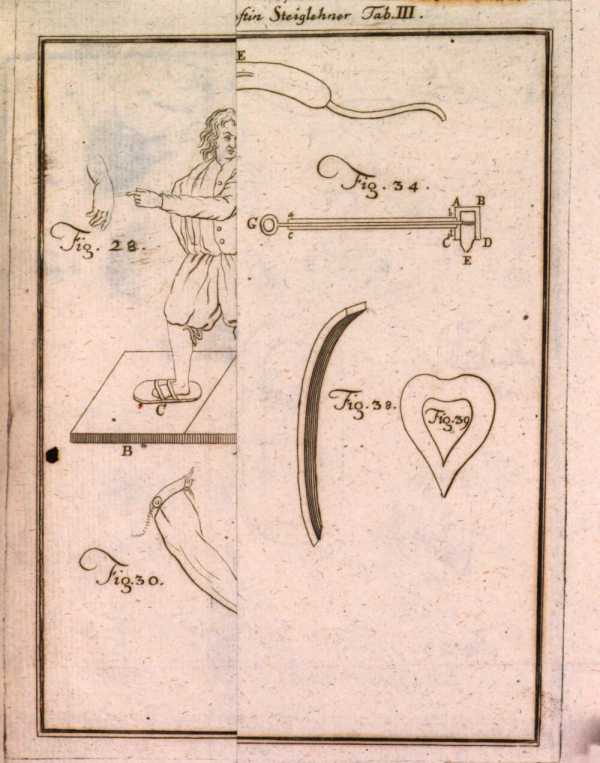 Steiglehner Tab. III.
E
Fig. 34.
A B
G a c C D
E
Fig. 28.
C
B
Fig. 38.
Fig. 39
Fig. 30.